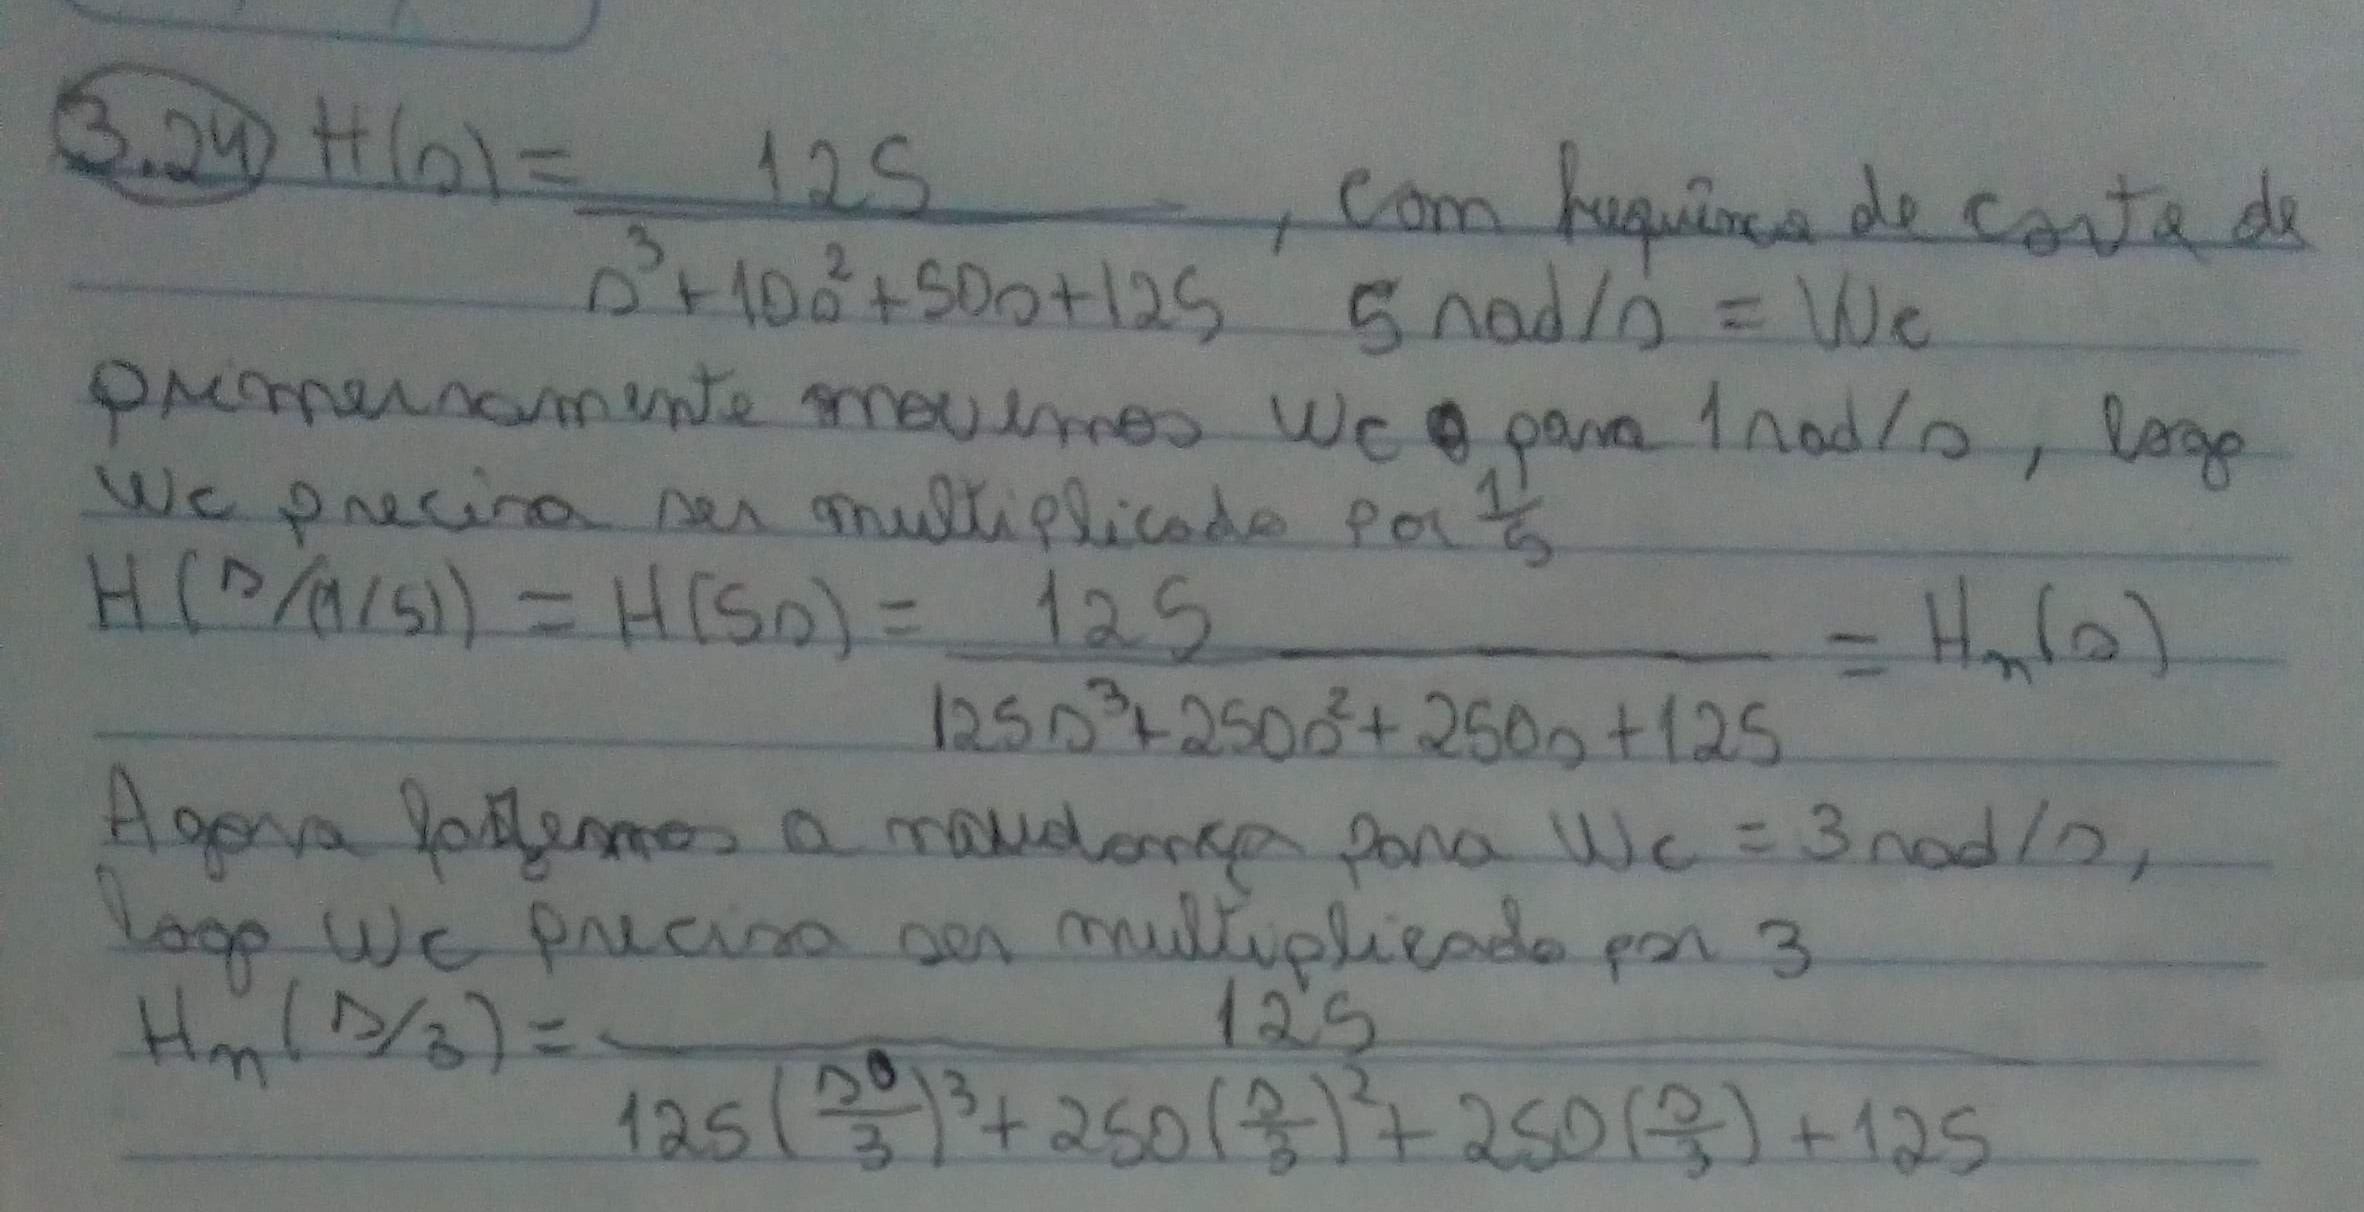 3.24) H(s) = 125 / (s³ + 10s² + 50s + 125), com frequência de corte de
5 rad/s = Wc
primeiramente movemos Wc para 1 rad/s, logo
Wc precisa ser multiplicado por 1/5
H(s/(1/5)) = H(5s) = 125 / (125s³ + 250s² + 250s + 125) = Hn(s)
Agora fazemos a mudança para Wc = 3 rad/s,
logo Wc precisa ser multiplicado por 3
Hn(s/3) = 125 / (125(s/3)³ + 250(s/3)² + 250(s/3) + 125)